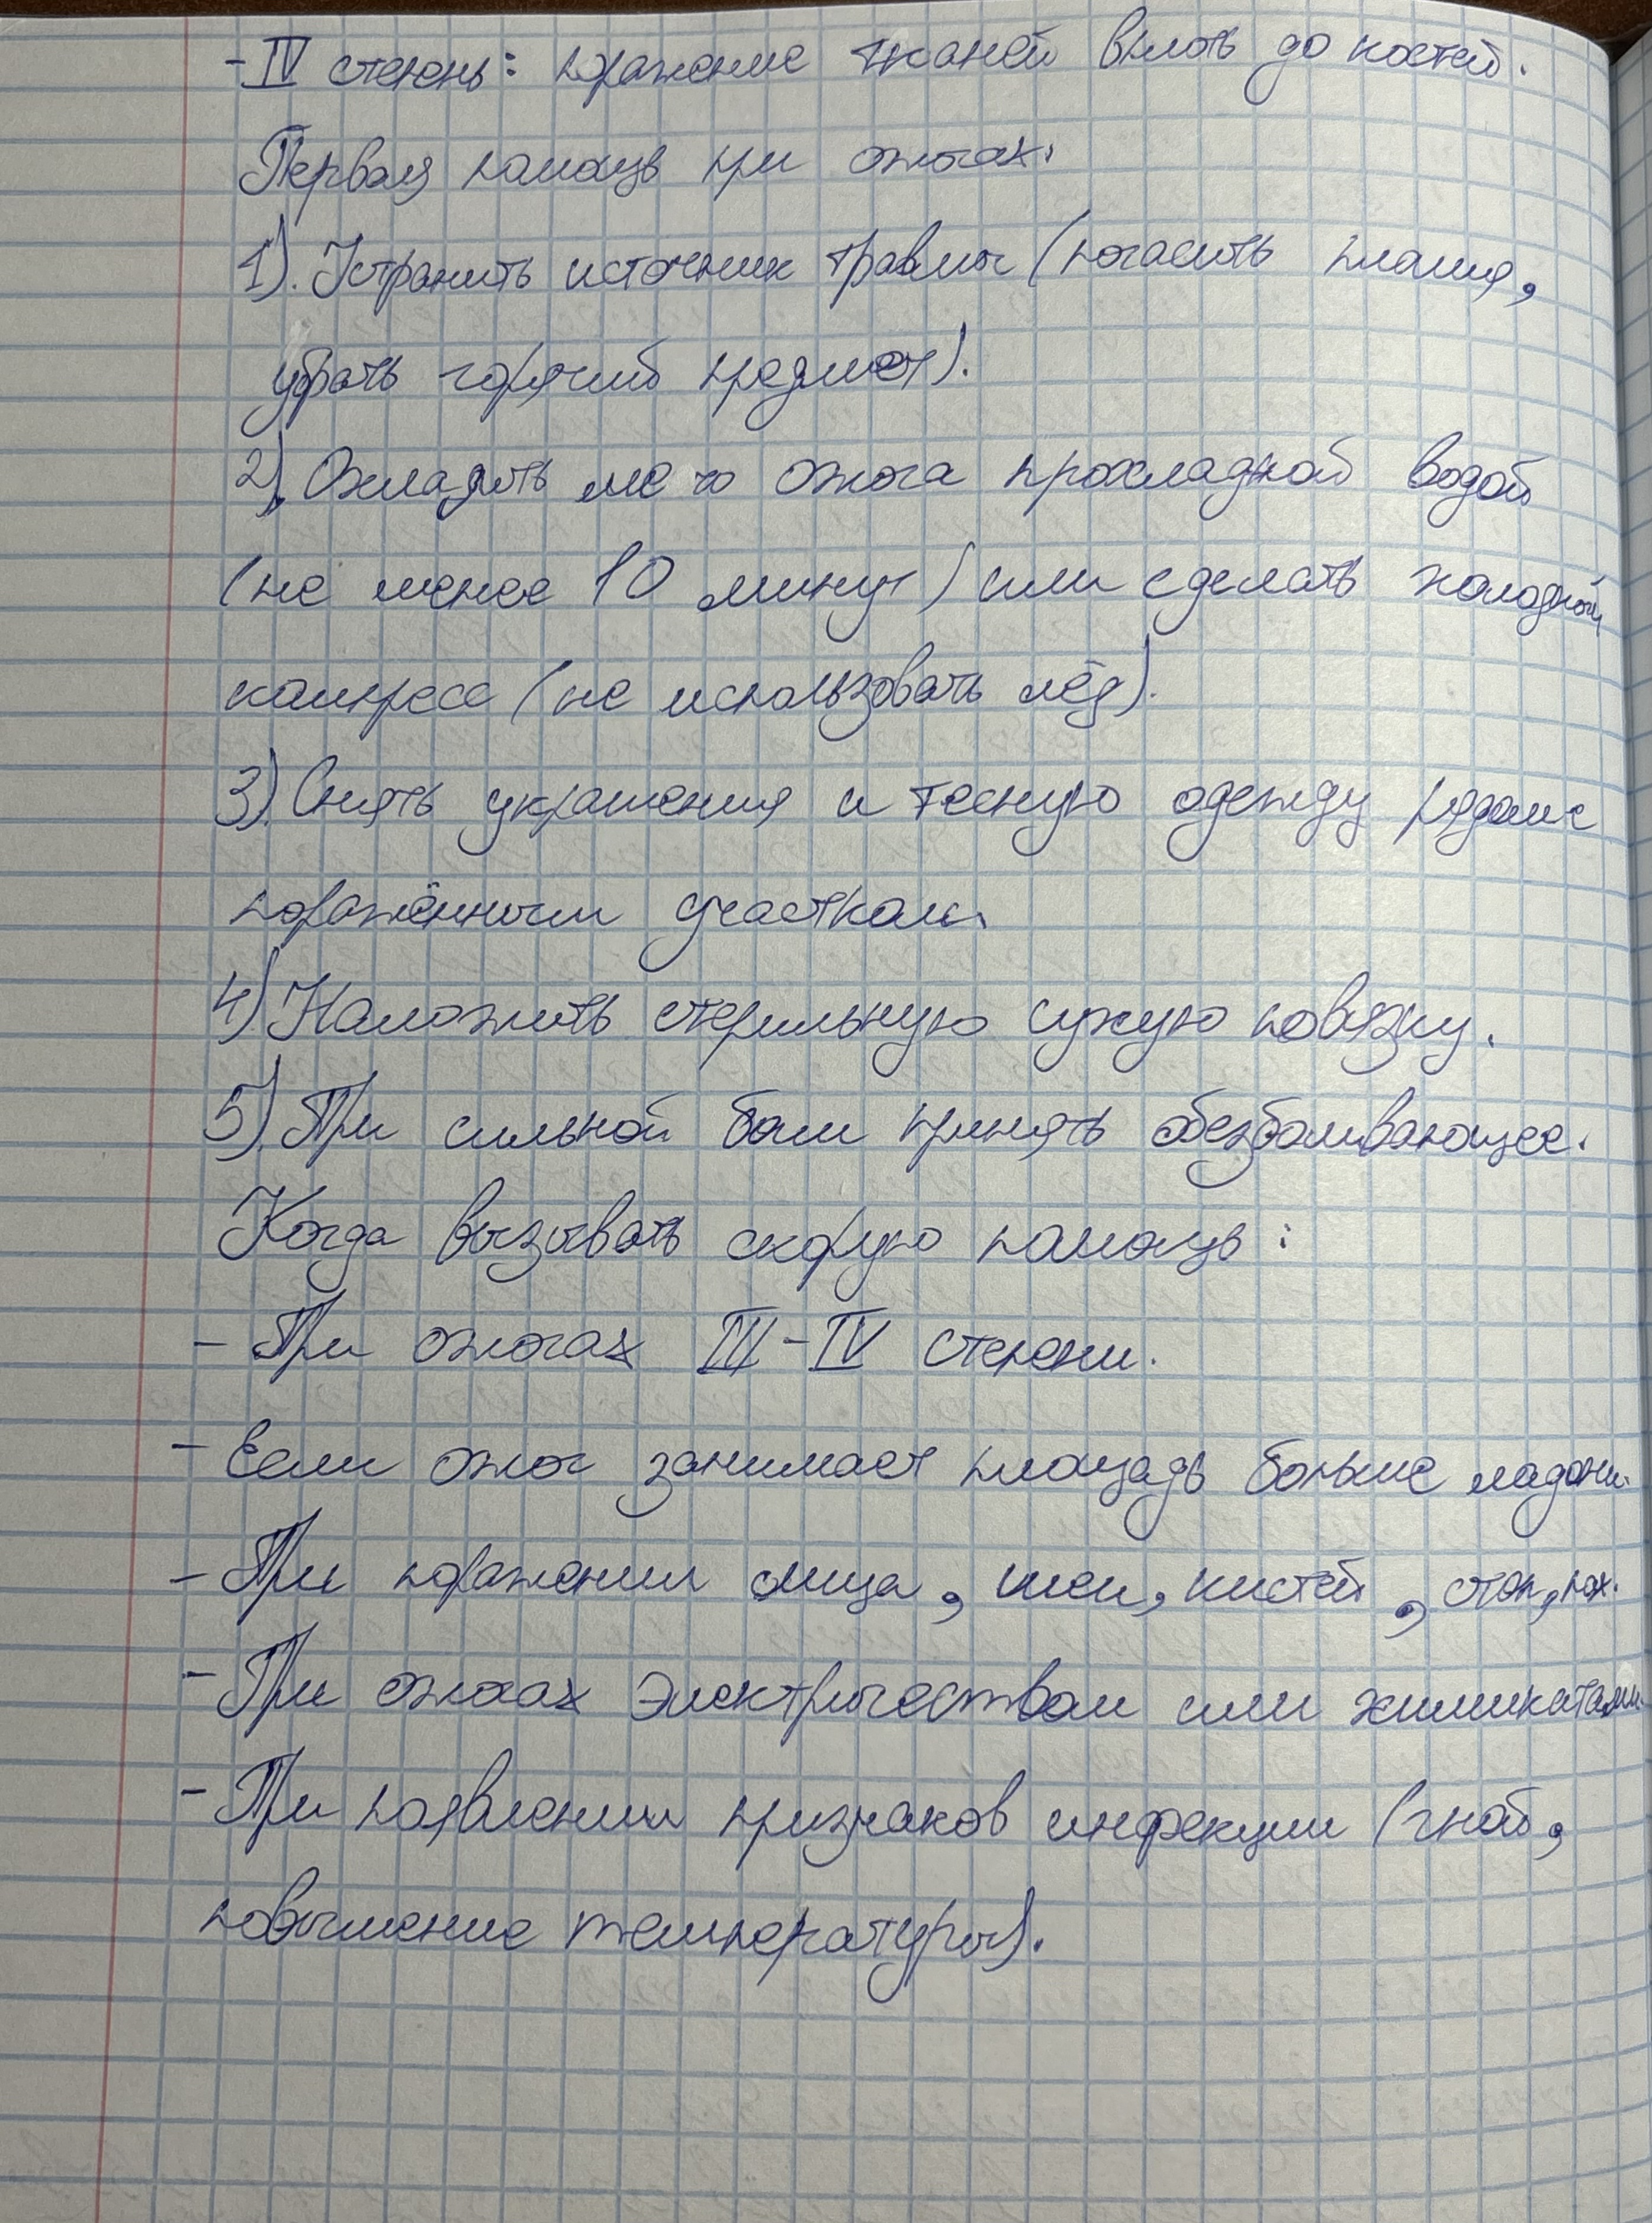 - IV степень: поражение тканей вплоть до костей.
Первая помощь при ожогах.
1). Устранить источник травмы (погасить пламя,
убрать горячий предмет).
2). Охладить место ожога прохладной водой
(не менее 10 минут) или сделать холодный
компресс (не использовать лёд).
3). Снять украшения и тесную одежду рядом с
поражённым участком.
4). Наложить стерильную сухую повязку.
5). При сильной боли принять обезболивающее.
Когда вызывать скорую помощь:
- При ожогах III-IV степени.
- Если ожог занимает площадь больше ладони.
- При поражении лица, шеи, кистей, стоп, пах.
- При ожогах электричеством или химикатами.
- При появлении признаков инфекции (гной,
повышение температуры).